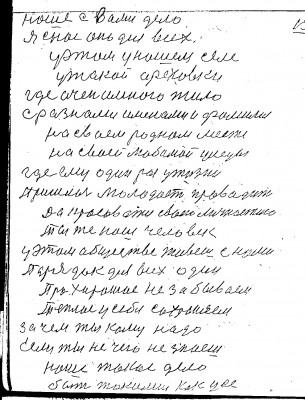 наше с Вами дело
Я снос оно для всех.
у этом у нашем селе
у такой ореховки
где очен много жило
с разнами именами и фамили
на своем родном месте
на своей любимой улецы
где ему один раз у жизни
молодасть
Да просов эти свои личнастию
ты же наш человек
у этом обществе живеш с нами
парядок для всех один
Про харошое не забываем
Теплое у себя сохроняем
зачем ты кому надо
если ты не чего не знаеш
наше такое дело
быть такими как усе